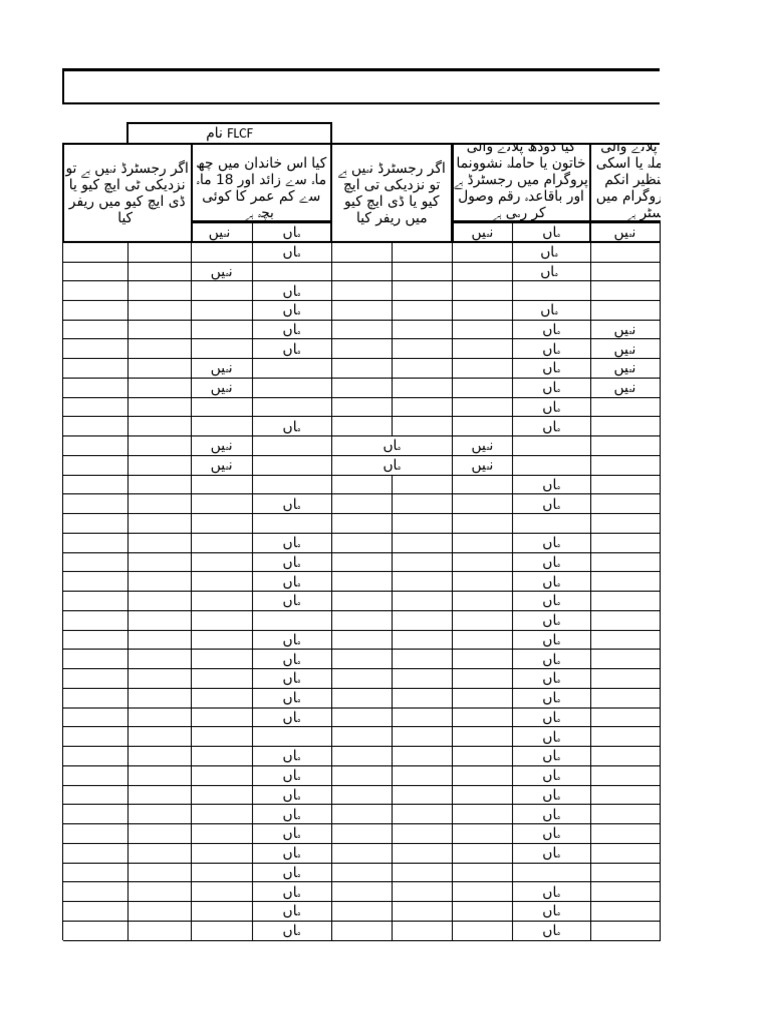 نام FLCF
پلانے والی
ملہ یا اسکی
نظیر انکم
روگرام میں
سٹر ہے
کیا دودھ پلانے والی
خاتون یا حاملہ نشوونما
پروگرام میں رجسٹرڈ ہے
اور باقاعدہ رقم وصول
کر رہی ہے
اگر رجسٹرڈ نہیں ہے
تو نزدیکی تی ایچ
کیو یا ڈی ایچ کیو
میں ریفر کیا
کیا اس خاندان میں چھ
ماہ سے زائد اور 18 ماہ
سے کم عمر کا کوئی
بچہ ہے
اگر رجسٹرڈ نہیں ہے تو
نزدیکی ٹی ایچ کیو یا
ڈی ایچ کیو میں ریفر
کیا
نہیں ہاں نہیں ہاں نہیں
ہاں ہاں
ہاں نہیں
ہاں
ہاں ہاں
نہیں ہاں ہاں
نہیں ہاں ہاں
نہیں ہاں نہیں
نہیں ہاں نہیں
ہاں
ہاں ہاں
نہیں ہاں نہیں
نہیں ہاں نہیں
ہاں
ہاں ہاں
ہاں ہاں
ہاں ہاں
ہاں ہاں
ہاں ہاں
ہاں
ہاں ہاں
ہاں ہاں
ہاں ہاں
ہاں ہاں
ہاں ہاں
ہاں
ہاں ہاں
ہاں ہاں
ہاں ہاں
ہاں ہاں
ہاں ہاں
ہاں ہاں
ہاں
ہاں ہاں
ہاں ہاں
ہاں ہاں